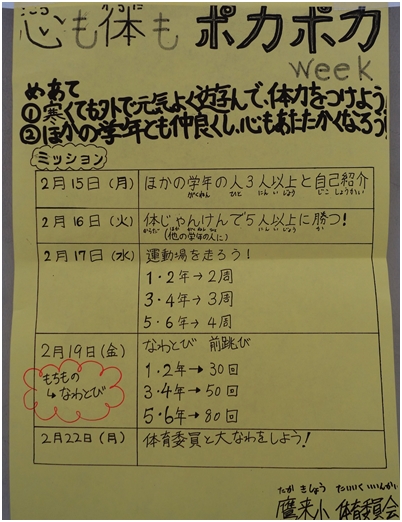 こころ からだ
心も体も ポカポカ
week
めあて
①寒くても外で元気よく遊んで、体力をつけよう!
②ほかの学年とも仲良くし、心もあたたかくなろう!
ミッション
2月15日(月) ほかの学年の人3人以上と自己紹介
がくねん ひと にんいじょう じこしょうかい
2月16日(火) 体じゃんけんで5人以上に勝つ!
からだ にんいじょう か
(他の学年の人に)
2月17日(水) 運動場を走ろう!
1・2年→2周
3・4年→3周
5・6年→4周
2月19日(金) なわとび 前跳び
もちもの
↳なわとび
1・2年→30回
3・4年→50回
5・6年→80回
2月22日(月) 体育委員と大なわをしよう!
たか きしょう たいいく いいんかい
鷹来小 体育委員会